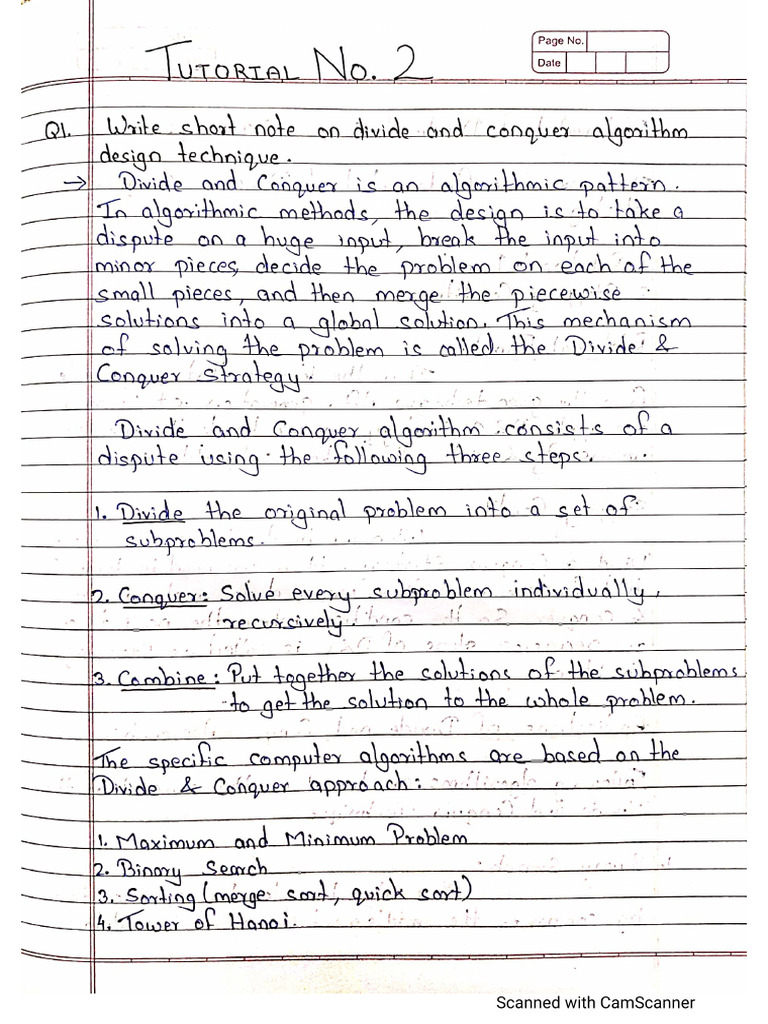 TUTORIAL NO. 2
Page No.
Date
Q1. Write short note on divide and conquer algorithm
design technique.
→ Divide and Conquer is an algorithmic pattern.
In algorithmic methods, the design is to take a
dispute on a huge input, break the input into
minor pieces, decide the problem on each of the
small pieces, and then merge the piecewise
solutions into a global solution. This mechanism
of solving the problem is called the Divide &
Conquer Strategy.
Divide and Conquer algorithm consists of a
dispute using the following three steps.
1. Divide the original problem into a set of
subproblems.
2. Conquer: Solve every subproblem individually,
recursively.
3. Combine: Put together the solutions of the subproblems
to get the solution to the whole problem.
The specific computer algorithms are based on the
Divide & Conquer approach:
1. Maximum and Minimum Problem
2. Binary Search
3. Sorting (merge sort, quick sort)
4. Tower of Hanoi.
Scanned with CamScanner